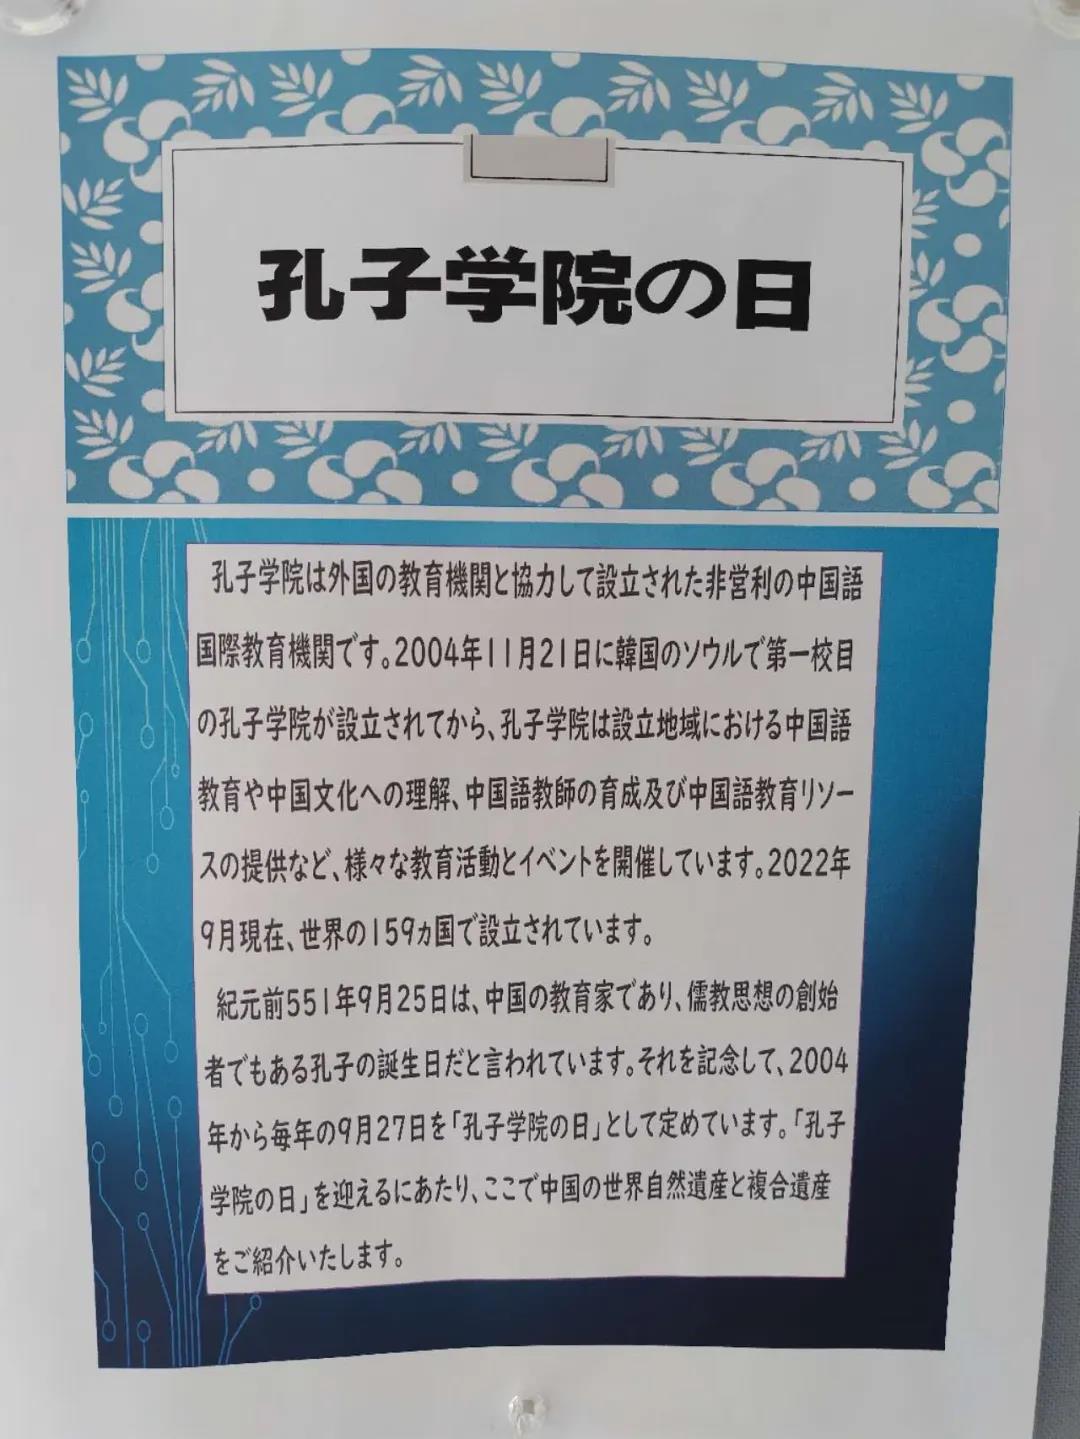 孔子学院の日
孔子学院は外国の教育機関と協力して設立された非営利の中国語
国際教育機関です。2004年11月21日に韓国のソウルで第一校目
の孔子学院が設立されてから、孔子学院は設立地域における中国語
教育や中国文化への理解、中国語教師の育成及び中国語教育リソー
スの提供など、様々な教育活動とイベントを開催しています。2022年
9月現在、世界の159ヵ国で設立されています。
紀元前551年9月25日は、中国の教育家であり、儒教思想の創始
者でもある孔子の誕生日だと言われています。それを記念して、2004
年から毎年の9月27日を「孔子学院の日」として定めています。「孔子
学院の日」を迎えるにあたり、ここで中国の世界自然遺産と複合遺産
をご紹介いたします。